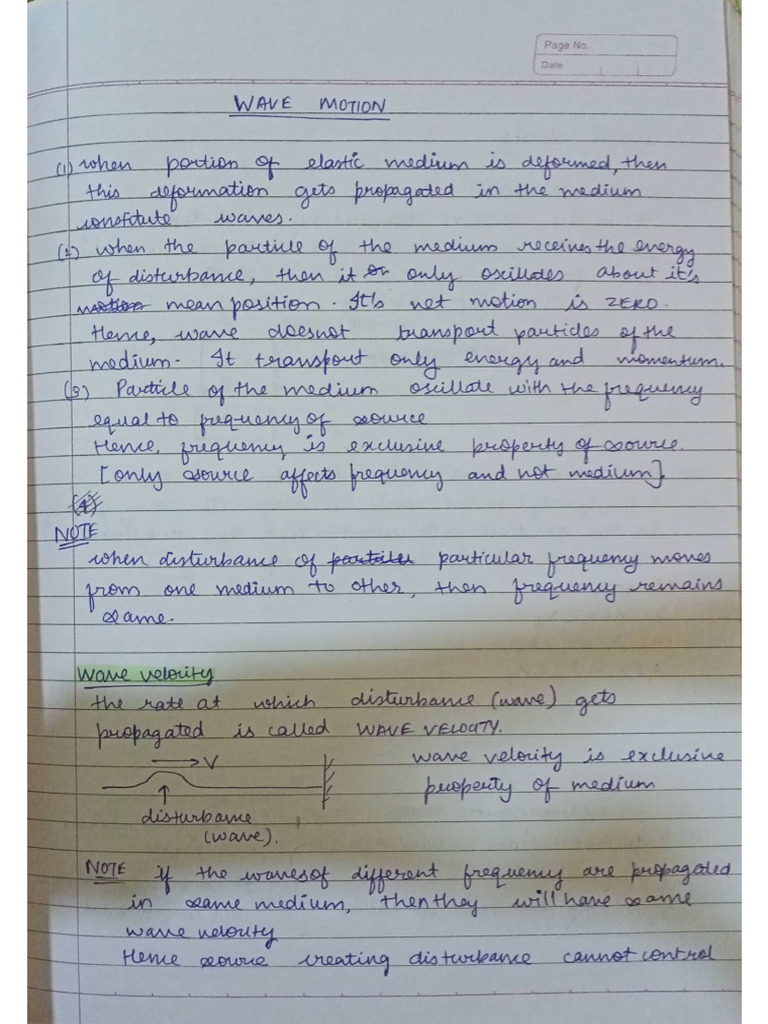 Page No.
Date
WAVE MOTION
(1) when portion of elastic medium is deformed, then
this deformation gets propagated in the medium
constitute waves.
(2) when the particle of the medium receives the energy
of disturbance, then it only oscillates about it's
mean position. It's net motion is ZERO.
Hence, wave doesnot transport particles of the
medium. It transport only energy and momentum.
(3) Particle of the medium oscillate with the frequency
equal to frequency of source
Hence, frequency is exclusive property of source.
[only source affects frequency and not medium].
(4)
NOTE
when disturbance of particular frequency moves
from one medium to other, then frequency remains
same.
Wave velocity
the rate at which disturbance (wave) gets
propagated is called WAVE VELOCITY.
V
wave velocity is exclusive
property of medium
disturbance
(wave).
NOTE if the waves of different frequency are propagated
in same medium, then they will have same
wave velocity
Hence source creating disturbance cannot control